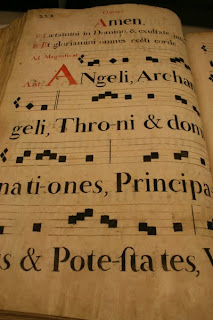 Amen.
Lætamini in Domino, & exultate
Et gloriamini omnes recti corde
Ad Magnificat
Ant. Angeli, Archan
geli, Thro-ni & dom
nati-ones, Principa
s & Pote-ſta tes, V